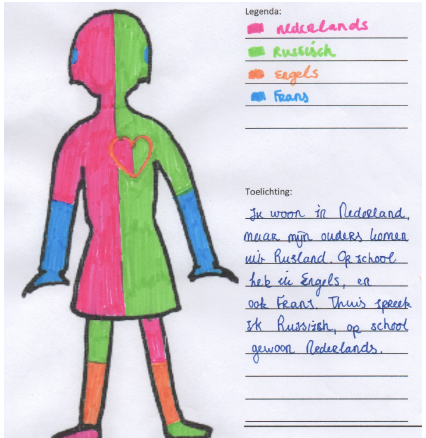 Legenda:
Nederlands
Russisch
Engels
Frans
Toelichting:
Ik woon in Nederland,
maar mijn ouders komen
uit Rusland. Op school
heb ik Engels, en
ook Frans. Thuis spreek
ik Russisch, op school
gewoon Nederlands.